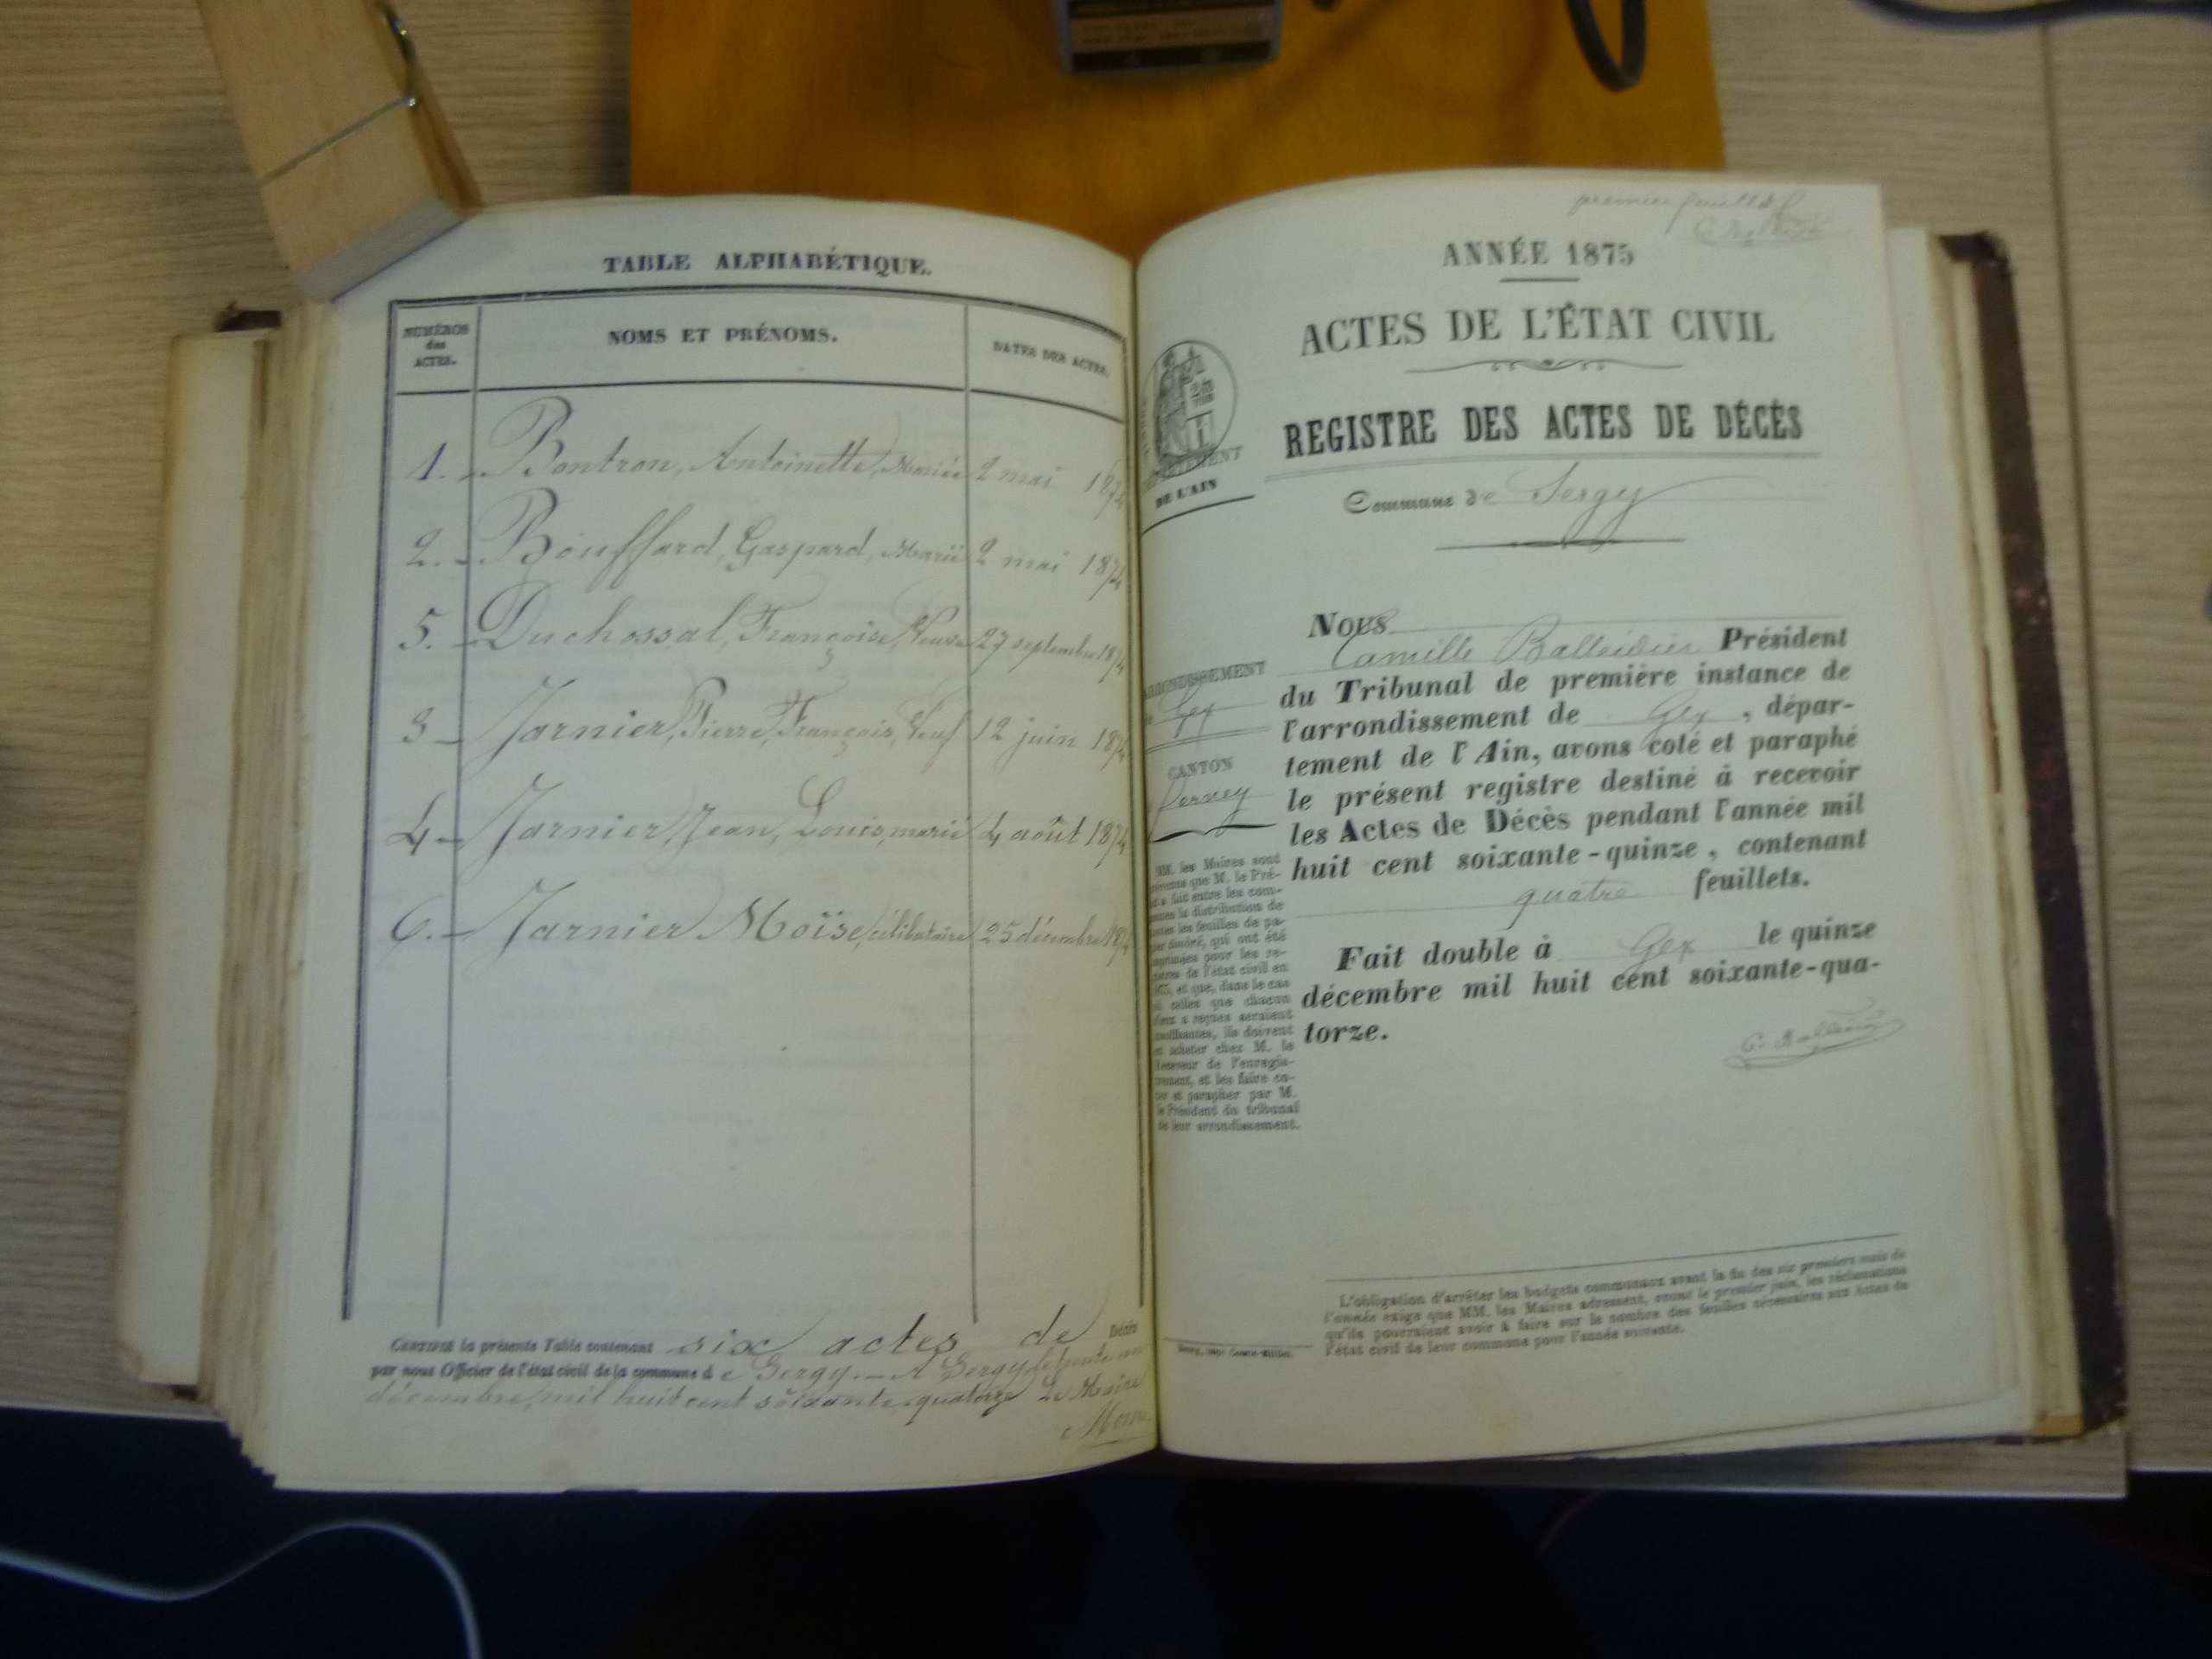 TABLE ALPHABÉTIQUE.
NUMÉROS
des
ACTES.
NOMS ET PRÉNOMS.
DATES DES ACTES.
1. Bontron, Antoinette, Mariée 2 mai 1874
2. Bouffard, Gaspard, Marié 2 mai 1874
5. Duchossal, Françoise, Veuve 27 septembre 1874
3 Jarnier, Pierre, François, Veuf 12 juin 1874
4 Jarnier, Jean, Louis, marié 4 août 1874
6. Jarnier Moïse, célibataire 25 décembre 1874
CERTIFIÉ la présente Table contenant six actes de Décès
par nous Officier de l'état civil de la commune de Sergy. — A Sergy, le trente un
décembre, mil huit cent soixante-quatorze Le Maire
premier feuillet
ANNÉE 1875
ACTES DE L'ÉTAT CIVIL
REGISTRE DES ACTES DE DÉCÈS
25
DÉPARTEMENT
DE L'AIN
Commune de Sergy
ARRONDISSEMENT
Gex
CANTON
Ferney
MM. les Maires sont
prévenus que M. le Pré-
a fait entre les com-
munes la distribution de
toutes les feuilles de pa-
pier timbré, qui ont été
imprimées pour les re-
gistres de l'état civil en
et que, dans le cas
où celles que chacun
d'eux a reçues seraient
insuffisantes, ils doivent
en acheter chez M. le
Receveur de l'enregis-
trement, et les faire co-
ter et parapher par M.
le Président du tribunal
de leur arrondissement.
NOUS
Camille Balleidier Président
du Tribunal de première instance de
l'arrondissement de Gex, dépar-
tement de l'Ain, avons coté et paraphé
le présent registre destiné à recevoir
les Actes de Décès pendant l'année mil
huit cent soixante-quinze, contenant
quatre feuillets.
Fait double à Gex le quinze
décembre mil huit cent soixante-qua-
torze.
L'obligation d'arrêter les budgets communaux avant la fin des six premiers mois de
l'année exige que MM. les Maires adressent, avant le premier juin, les réclamations
qu'ils pourraient avoir à faire sur le nombre des feuilles nécessaires aux Actes de
l'état civil de leur commune pour l'année suivante.